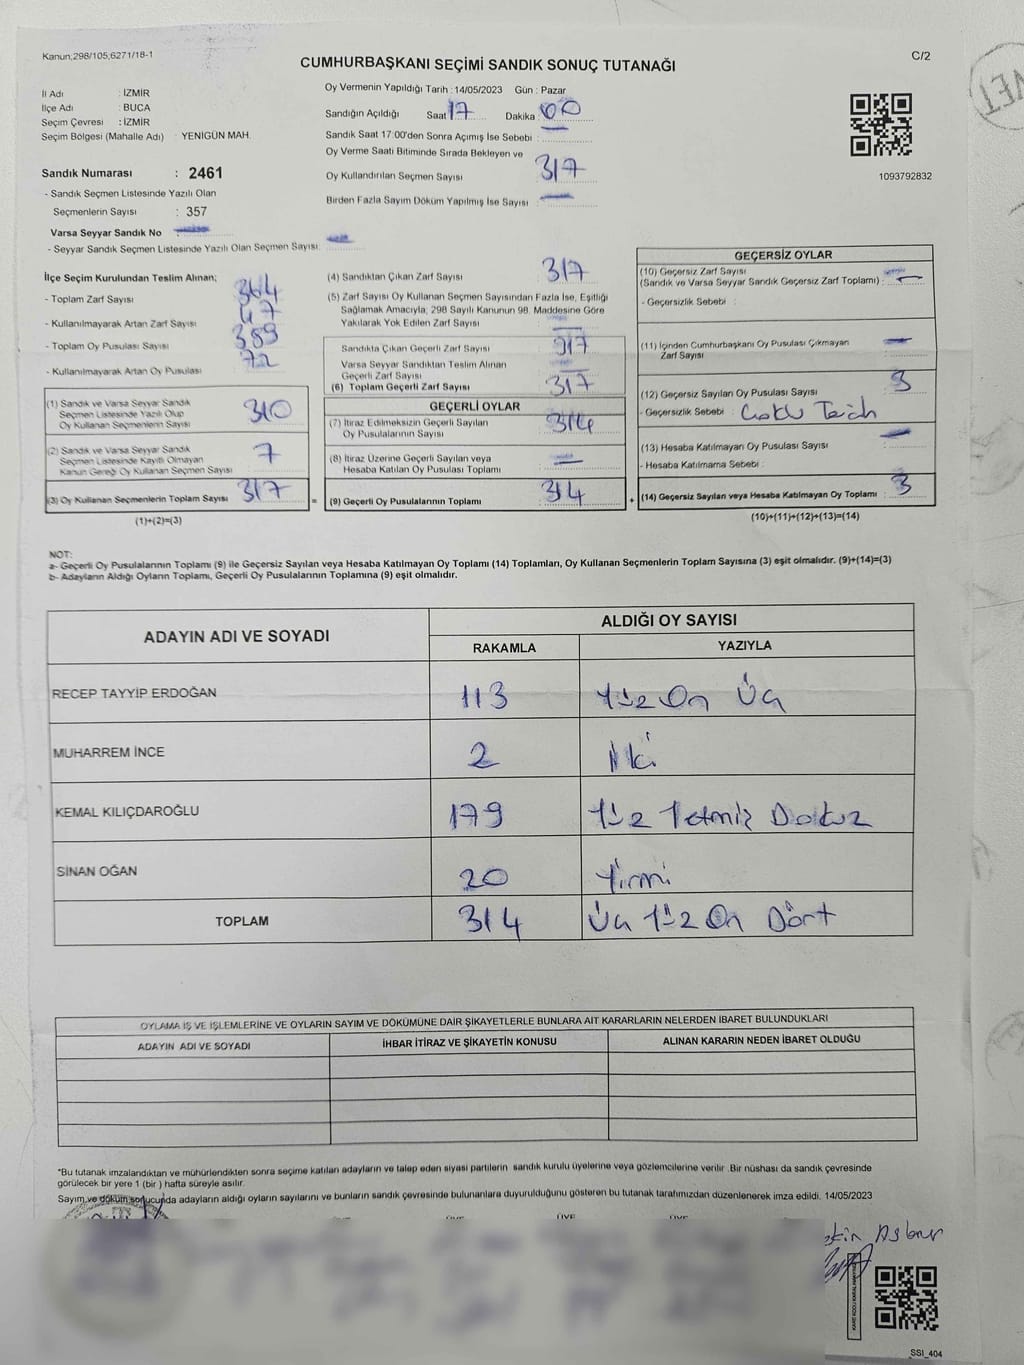 Kanun;298/105;6271/18-1
C/2
CUMHURBAŞKANI SEÇİMİ SANDIK SONUÇ TUTANAĞI
İl Adı : İZMİR
İlçe Adı : BUCA
Seçim Çevresi : İZMİR
Seçim Bölgesi (Mahalle Adı) : YENİGÜN MAH.
Sandık Numarası : 2461
- Sandık Seçmen Listesinde Yazılı Olan
Seçmenlerin Sayısı : 357
Varsa Seyyar Sandık No
- Seyyar Sandık Seçmen Listesinde Yazılı Olan Seçmen Sayısı:
Oy Vermenin Yapıldığı Tarih : 14/05/2023 Gün : Pazar
Sandığın Açıldığı Saat 17 Dakika 00
Sandık Saat 17:00'den Sonra Açımış İse Sebebi :
Oy Verme Saati Bitiminde Sırada Bekleyen ve
Oy Kullandırılan Seçmen Sayısı 317
Birden Fazla Sayım Döküm Yapılmış İse Sayısı :
1093792832
İlçe Seçim Kurulundan Teslim Alınan;
- Toplam Zarf Sayısı 364
- Kullanılmayarak Artan Zarf Sayısı 47
- Toplam Oy Pusulası Sayısı 389
- Kullanılmayarak Artan Oy Pusulası 72
(1) Sandık ve Varsa Seyyar Sandık
Seçmen Listesinde Yazılı Olup
Oy Kullanan Seçmenlerin Sayısı 310
(2) Sandık ve Varsa Seyyar Sandık
Seçmen Listesinde Kayıtlı Olmayan
Kanun Gereği Oy Kullanan Seçmen Sayısı 7
(3) Oy Kullanan Seçmenlerin Toplam Sayısı 317
(1)+(2)=(3)
(4) Sandıktan Çıkan Zarf Sayısı 317
(5) Zarf Sayısı Oy Kullanan Seçmen Sayısından Fazla İse, Eşitliği
Sağlamak Amacıyla; 298 Sayılı Kanunun 98. Maddesine Göre
Yakılarak Yok Edilen Zarf Sayısı
Sandıkta Çıkan Geçerli Zarf Sayısı 317
Varsa Seyyar Sandıktan Teslim Alınan
Geçerli Zarf Sayısı
(6) Toplam Geçerli Zarf Sayısı 317
GEÇERLİ OYLAR
(7) İtiraz Edilmeksizin Geçerli Sayılan
Oy Pusulalarının Sayısı 314
(8) İtiraz Üzerine Geçerli Sayılan veya
Hesaba Katılan Oy Pusulası Toplamı
= (9) Geçerli Oy Pusulalarının Toplamı 314
GEÇERSİZ OYLAR
(10) Geçersiz Zarf Sayısı
(Sandık ve Varsa Seyyar Sandık Geçersiz Zarf Toplamı) :
- Geçersizlik Sebebi :
(11) İçinden Cumhurbaşkanı Oy Pusulası Çıkmayan
Zarf Sayısı
(12) Geçersiz Sayılan Oy Pusulası Sayısı 3
- Geçersizlik Sebebi : Çoklu Tercih
(13) Hesaba Katılmayan Oy Pusulası Sayısı
- Hesaba Katılmama Sebebi :
+ (14) Geçersiz Sayılan veya Hesaba Katılmayan Oy Toplamı 3
(10)+(11)+(12)+(13)=(14)
NOT:
a- Geçerli Oy Pusulalarının Toplamı (9) ile Geçersiz Sayılan veya Hesaba Katılmayan Oy Toplamı (14) Toplamları, Oy Kullanan Seçmenlerin Toplam Sayısına (3) eşit olmalıdır. (9)+(14)=(3)
b- Adayların Aldığı Oyların Toplamı, Geçerli Oy Pusulalarının Toplamına (9) eşit olmalıdır.
ADAYIN ADI VE SOYADI
ALDIĞI OY SAYISI
RAKAMLA YAZIYLA
RECEP TAYYİP ERDOĞAN 113 Yüz On Üç
MUHARREM İNCE 2 İki
KEMAL KILIÇDAROĞLU 179 Yüz Yetmiş Dokuz
SİNAN OĞAN 20 Yirmi
TOPLAM 314 Üç Yüz On Dört
OYLAMA İŞ VE İŞLEMLERİNE VE OYLARIN SAYIM VE DÖKÜMÜNE DAİR ŞİKAYETLERLE BUNLARA AİT KARARLARIN NELERDEN İBARET BULUNDUKLARI
ADAYIN ADI VE SOYADI İHBAR İTİRAZ VE ŞİKAYETİN KONUSU ALINAN KARARIN NEDEN İBARET OLDUĞU
*Bu tutanak imzalandıktan ve mühürlendikten sonra seçime katılan adayların ve talep eden siyasi partilerin sandık kurulu üyelerine veya gözlemcilerine verilir .Bir nüshası da sandık çevresinde
görülecek bir yere 1 (bir ) hafta süreyle asılır.
Sayım ve döküm sonucunda adayların aldığı oyların sayılarını ve bunların sandık çevresinde bulunanlara duyurulduğunu gösteren bu tutanak tarafımızdan düzenlenerek imza edildi. 14/05/2023
SSI_404